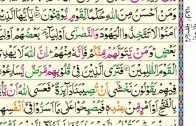 مَنْ اَحْسَنُ مِنَ اللّٰهِ حُكْمًا لِّقَوْمٍ يُّوْقِنُوْنَ يٰۤاَيُّهَا الَّذِيْنَ
اٰمَنُوْا لَا تَتَّخِذُوا الْيَهُوْدَ وَالنَّصٰرٰۤى اَوْلِيَآءَ بَعْضُهُمْ اَوْلِيَآءُ
بَعْضٍ وَمَنْ يَّتَوَلَّهُمْ مِّنْكُمْ فَاِنَّهٗ مِنْهُمْ اِنَّ اللّٰهَ لَا يَهْدِى
الْقَوْمَ الظّٰلِمِيْنَ فَتَرَى الَّذِيْنَ فِيْ قُلُوْبِهِمْ مَّرَضٌ يُّسَارِعُوْنَ
فِيْهِمْ يَقُوْلُوْنَ نَخْشٰۤى اَنْ تُصِيْبَنَا دَآئِرَةٌ فَعَسَى اللّٰهُ اَنْ يَّاْتِيَ
بِالْفَتْحِ اَوْ اَمْرٍ مِّنْ عِنْدِهٖ فَيُصْبِحُوْا عَلٰى مَاۤ اَسَرُّوْا فِيْۤ